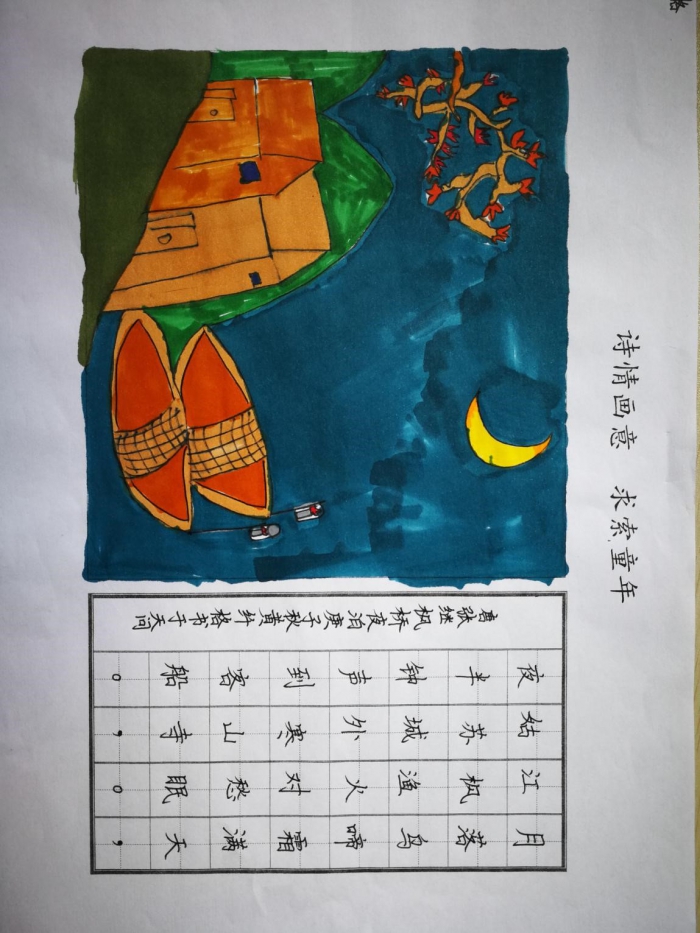 诗情画意 求索童年
月落乌啼霜满天，
江枫渔火对愁眠。
姑苏城外寒山寺，
夜半钟声到客船。
唐张继枫桥夜泊庚子秋黄格书于天问
格